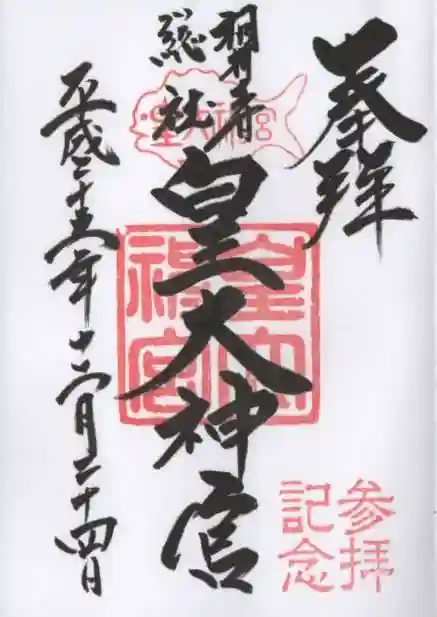 奉拝
総社
皇大神宮
皇大神宮
皇大神宮
平成二十五年十二月二十四日
参拝
記念